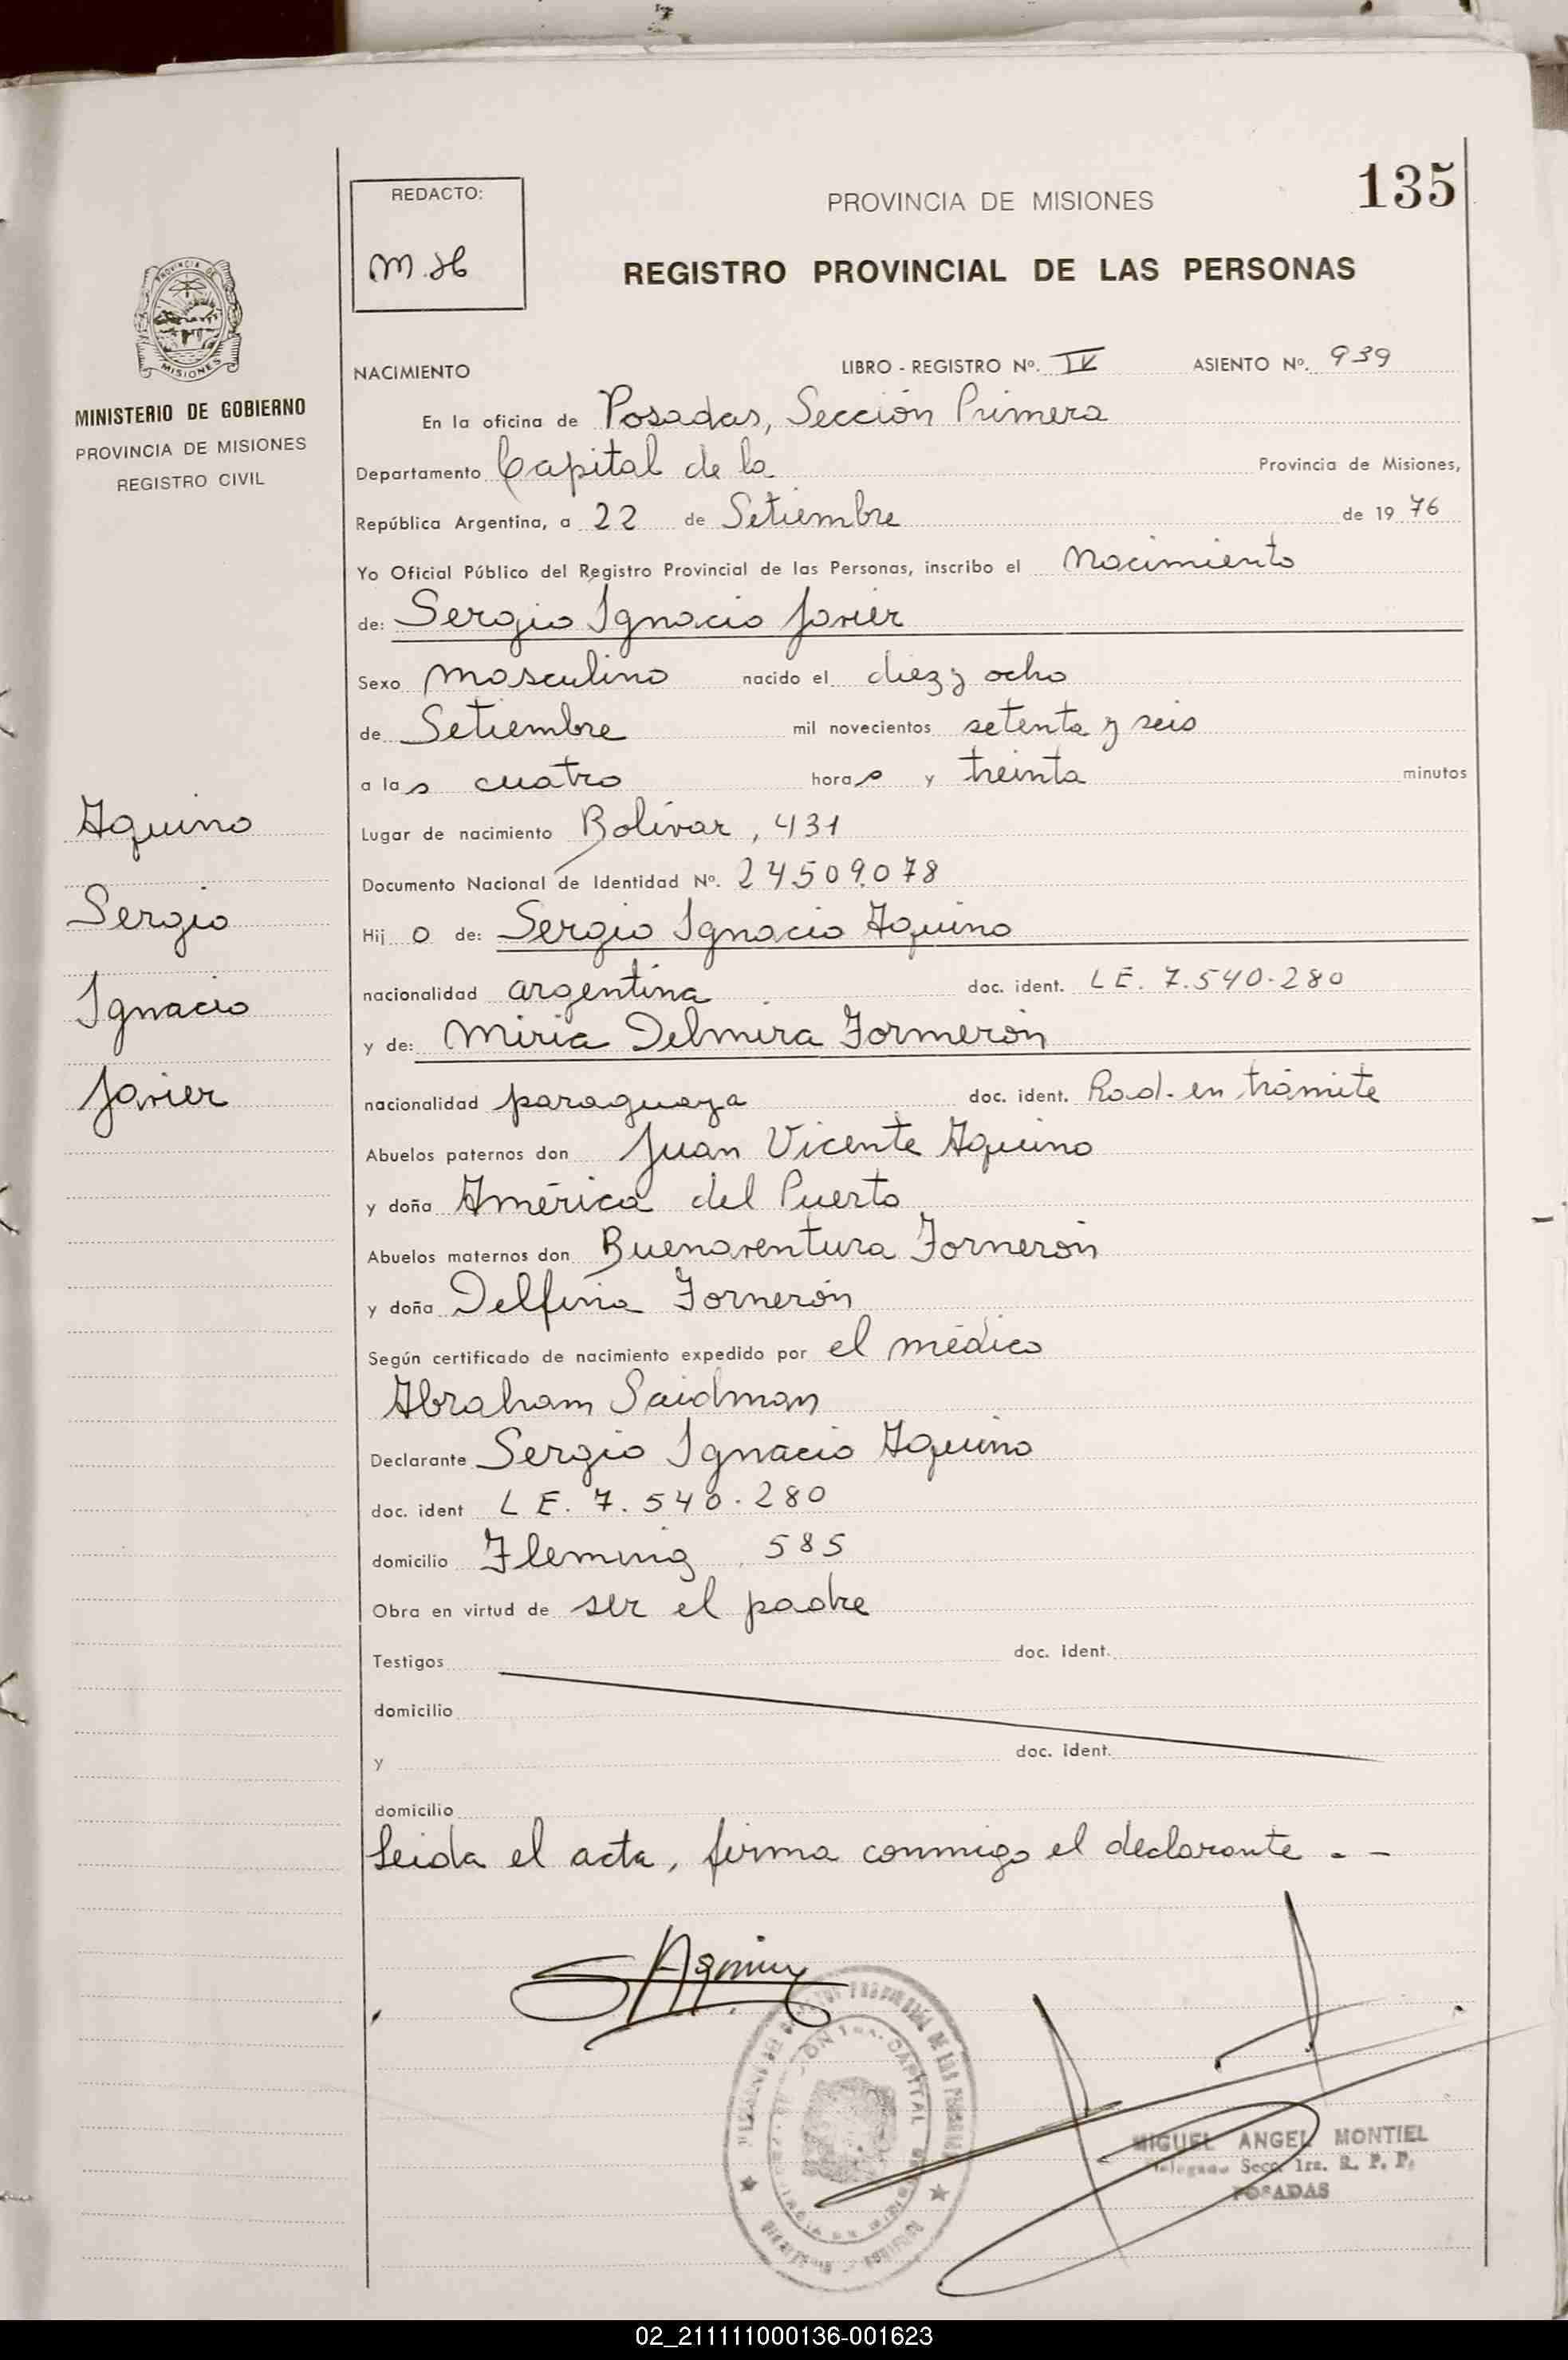 135
REDACTO:
M.H
PROVINCIA DE MISIONES
REGISTRO PROVINCIAL DE LAS PERSONAS
MISIONES
MINISTERIO DE GOBIERNO
PROVINCIA DE MISIONES
REGISTRO CIVIL
NACIMIENTO LIBRO - REGISTRO Nº. IV ASIENTO Nº. 939
En la oficina de Posadas, Sección Primera
Departamento Capital de la Provincia de Misiones,
República Argentina, a 22 de Setiembre de 1976
Yo Oficial Público del Registro Provincial de las Personas, inscribo el Nacimiento
de: Sergio Ignacio Javier
Sexo masculino nacido el diez y ocho
de Setiembre mil novecientos setenta y seis
a las cuatro horas y treinta minutos
Lugar de nacimiento Bolívar, 431
Documento Nacional de Identidad Nº. 24.509.078
Hijo de: Sergio Ignacio Aquino
nacionalidad argentina doc. ident. LE. 7.540.280
y de: Miria Delmira Formerón
nacionalidad paraguaya doc. ident. Rad. en trámite
Abuelos paternos don Juan Vicente Aquino
y doña América del Puerto
Abuelos maternos don Buenaventura Fornerón
y doña Delfina Fornerón
Según certificado de nacimiento expedido por el médico
Abraham Saidman
Declarante Sergio Ignacio Aquino
doc. ident LE. 7.540.280
domicilio Fleming 585
Obra en virtud de ser el padre
Testigos doc. ident.
domicilio
y doc. ident.
domicilio
Leida el acta, firma conmigo el declarante . -
Aquino
Sergio
Ignacio
Javier
SAquino
MIGUEL ANGEL MONTIEL
Delegado Secc. 1ra. R. P. P.
POSADAS
02_211111000136-001623